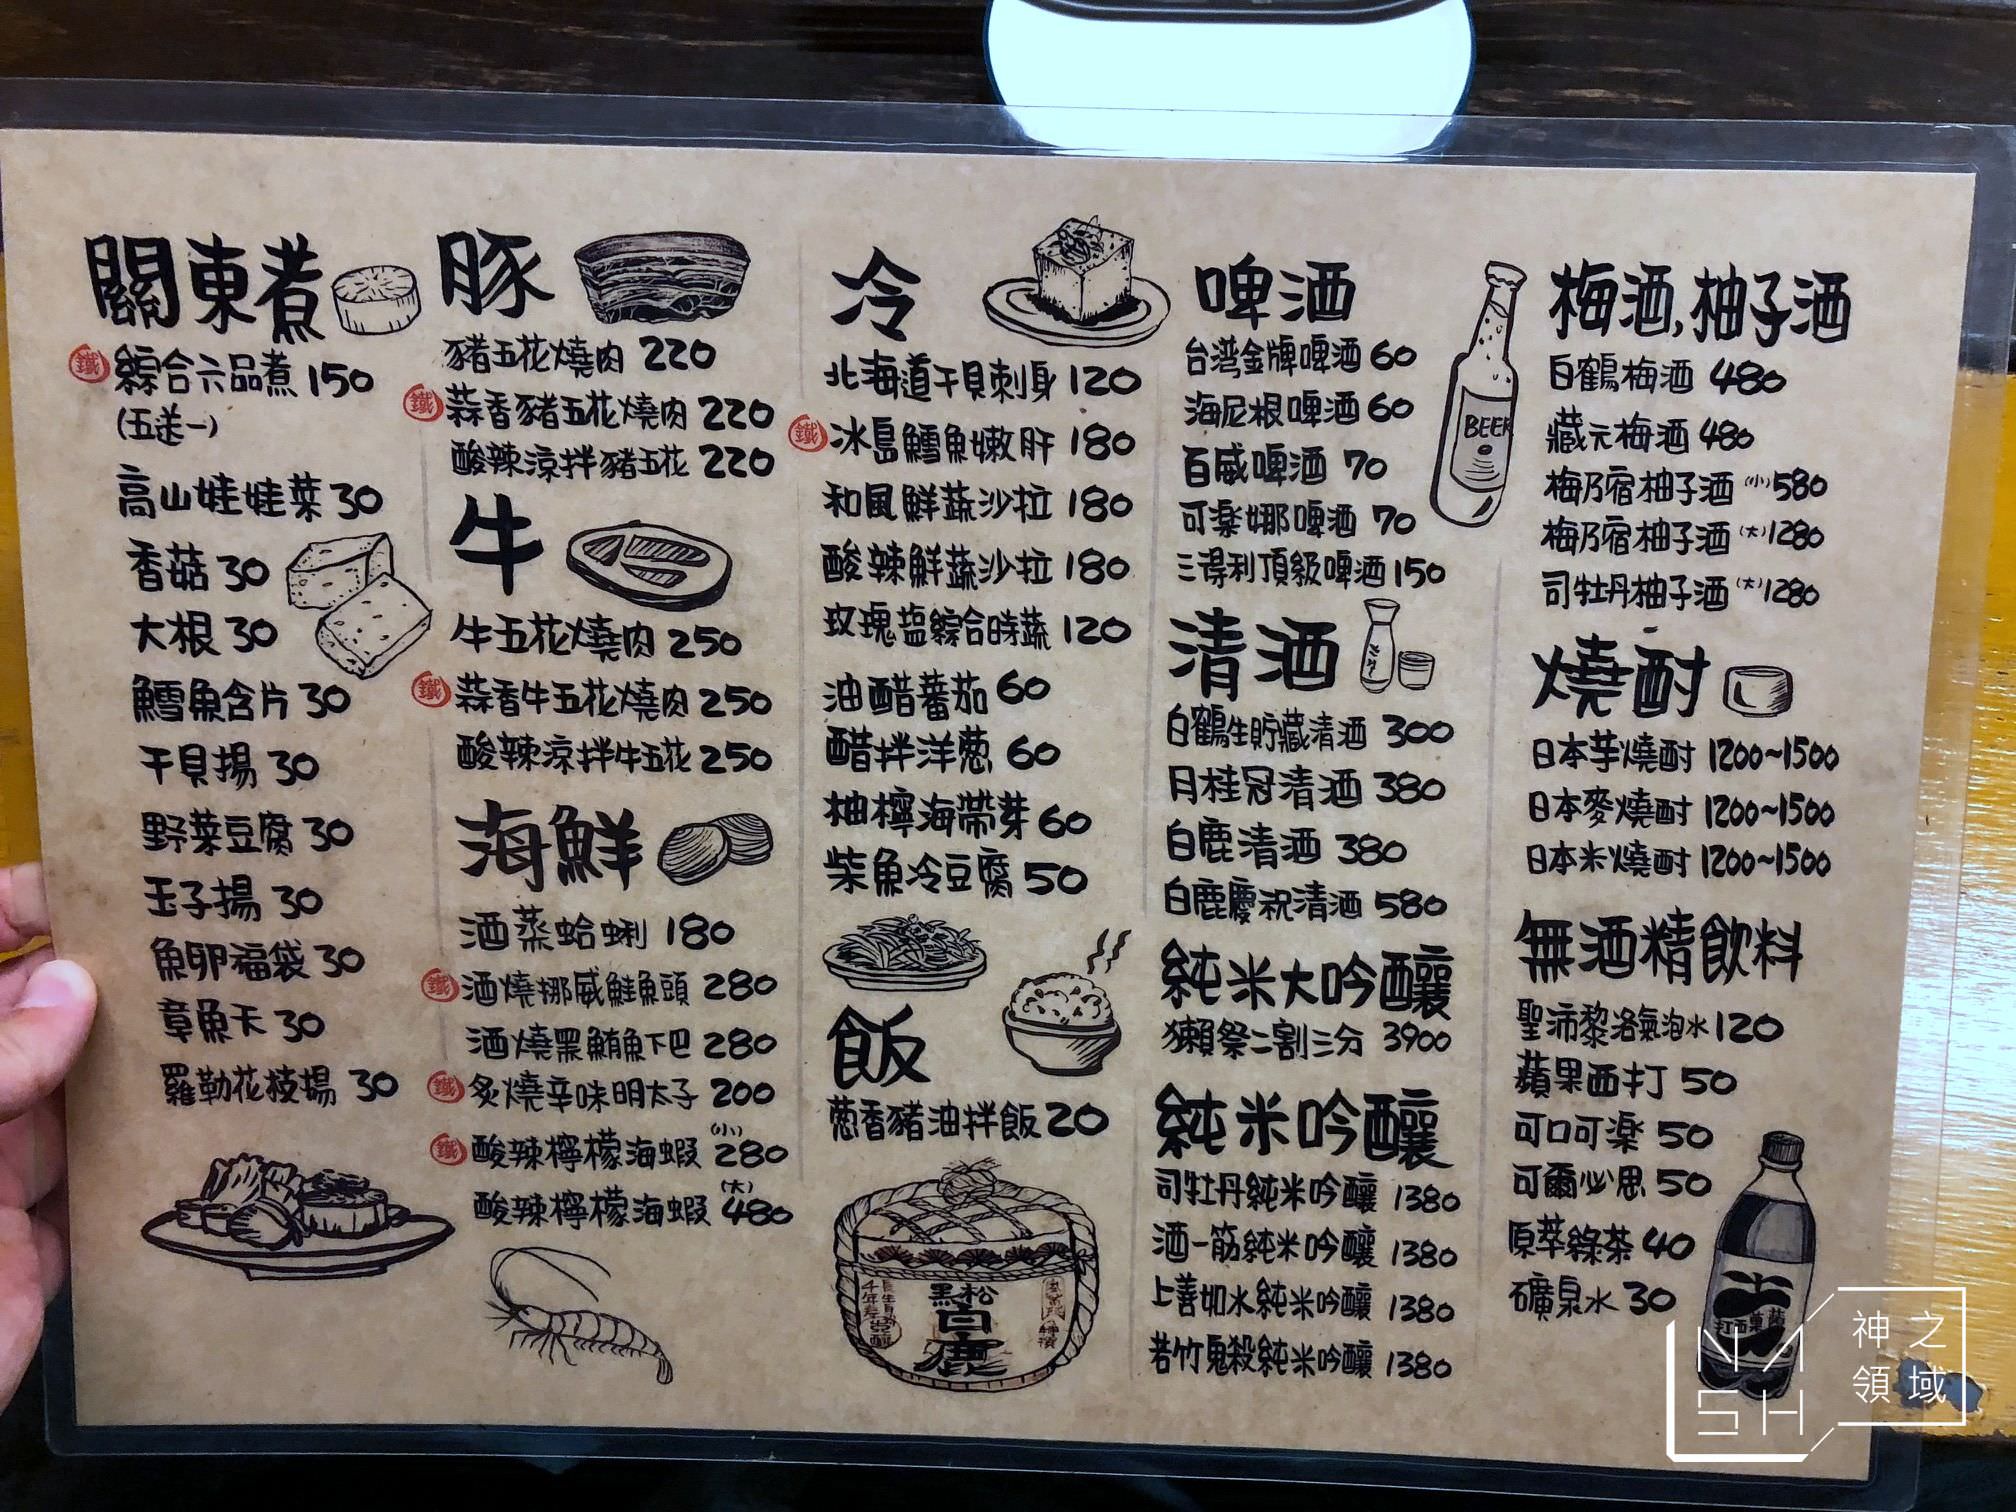 關東煮
鐵 綜合六品煮 150
(五送一)
高山娃娃菜 30
香菇 30
大根 30
鱈魚含片 30
干貝揚 30
野菜豆腐 30
玉子揚 30
魚卵福袋 30
章魚天 30
羅勒花枝揚 30
豚
豬五花燒肉 220
鐵 蒜香豬五花燒肉 220
酸辣涼拌豬五花 220
牛
牛五花燒肉 250
鐵 蒜香牛五花燒肉 250
酸辣涼拌牛五花 250
海鮮
酒蒸蛤蜊 180
鐵 酒燒挪威鮭魚頭 280
酒燒黑鮪魚下巴 280
鐵 炙燒辛味明太子 200
鐵 酸辣檸檬海蝦 (小) 280
酸辣檸檬海蝦 (大) 480
冷
北海道干貝刺身 120
鐵 冰島鱈魚嫩肝 180
和風鮮蔬沙拉 180
酸辣鮮蔬沙拉 180
玫瑰蘊綜合時蔬 120
油醋蕃茄 60
醋拌洋蔥 60
柚檸海帶芽 60
柴魚冷豆腐 50
飯
蔥香豬油拌飯 20
黑松
白鹿
啤酒
台灣金牌啤酒 60
海尼根啤酒 60
百威啤酒 70
可樂娜啤酒 70
三得利頂級啤酒 150
BEER
清酒
白鶴生貯藏清酒 300
月桂冠清酒 380
白鹿清酒 380
白鹿慶祝清酒 580
純米大吟釀
獺祭二割三分 3900
純米吟釀
司牡丹純米吟釀 1380
酒一筋純米吟釀 1380
上善如水純米吟釀 1380
若竹鬼殺純米吟釀 1380
梅酒,柚子酒
白鶴梅酒 480
藏元梅酒 480
梅乃宿柚子酒 (小) 580
梅乃宿柚子酒 (大) 1280
司牡丹柚子酒 (大) 1280
燒酎
日本芋燒酎 1200~1500
日本麥燒酎 1200~1500
日本米燒酎 1200~1500
無酒精飲料
聖沛黎洛氣泡水 120
蘋果西打 50
可口可樂 50
可爾必思 50
原萃綠茶 40
礦泉水 30
打西果蘋
NMSH
神之領域